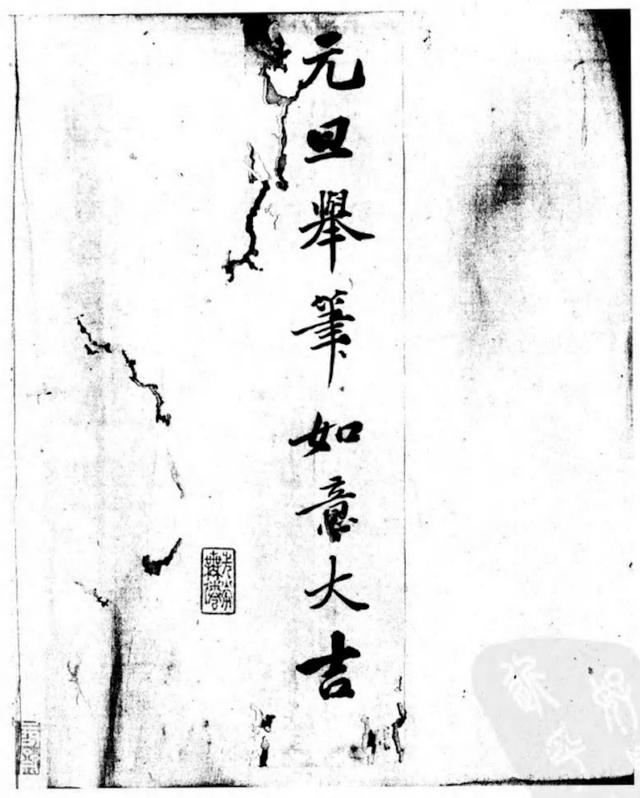 元旦舉筆如意大吉